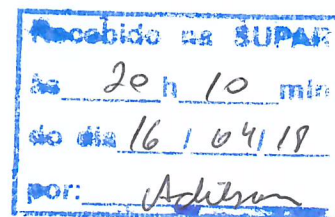 Recebido na SUPAR
às 20 h 10 min
do dia 16 / 04 / 18
por: Adilson